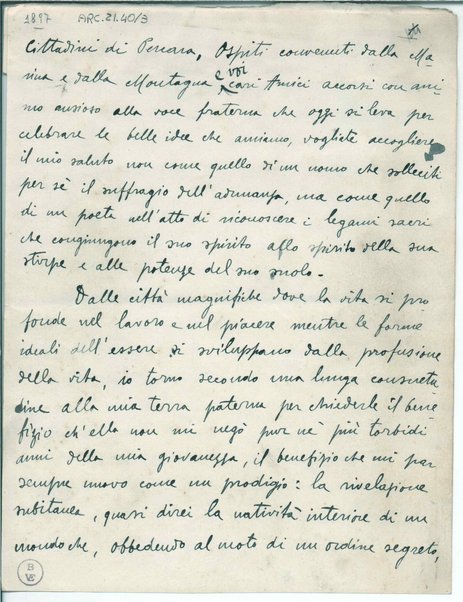 1897 ARC.21.40/3
Cittadini di Pescara, Ospiti convenuti dalla Ma-
rina e dalla Montagna e voi cari Amici accorsi con ani-
mo ansioso alla voce fraterna che oggi si leva per
celebrare le belle idee che amiamo, vogliate accogliere
il mio saluto non come quello di un uomo che solleciti
per sè il suffragio dell'adunanza, ma come quello
di un poeta nell'atto di riconoscere i legami sacri
che congiungono il suo spirito allo spirito della sua
stirpe e alle potenze del suo suolo.
Dalle città magnifiche dove la vita si pro
fonde nel lavoro e nel piacere mentre le forme
ideali dell'essere si sviluppano dalla profusione
della vita, io torno secondo una lunga consueta
dine alla mia terra paterna per chiederle il bene
fizio ch'ella non mi negò pur nè più torbidi
anni della mia giovanezza, il benefizio che mi par
sempre nuovo come un prodigio: la rivelazione
subitanea, quasi direi la natività interiore di un
mondo che, obbedendo al moto di un ordine segreto,
B
VE